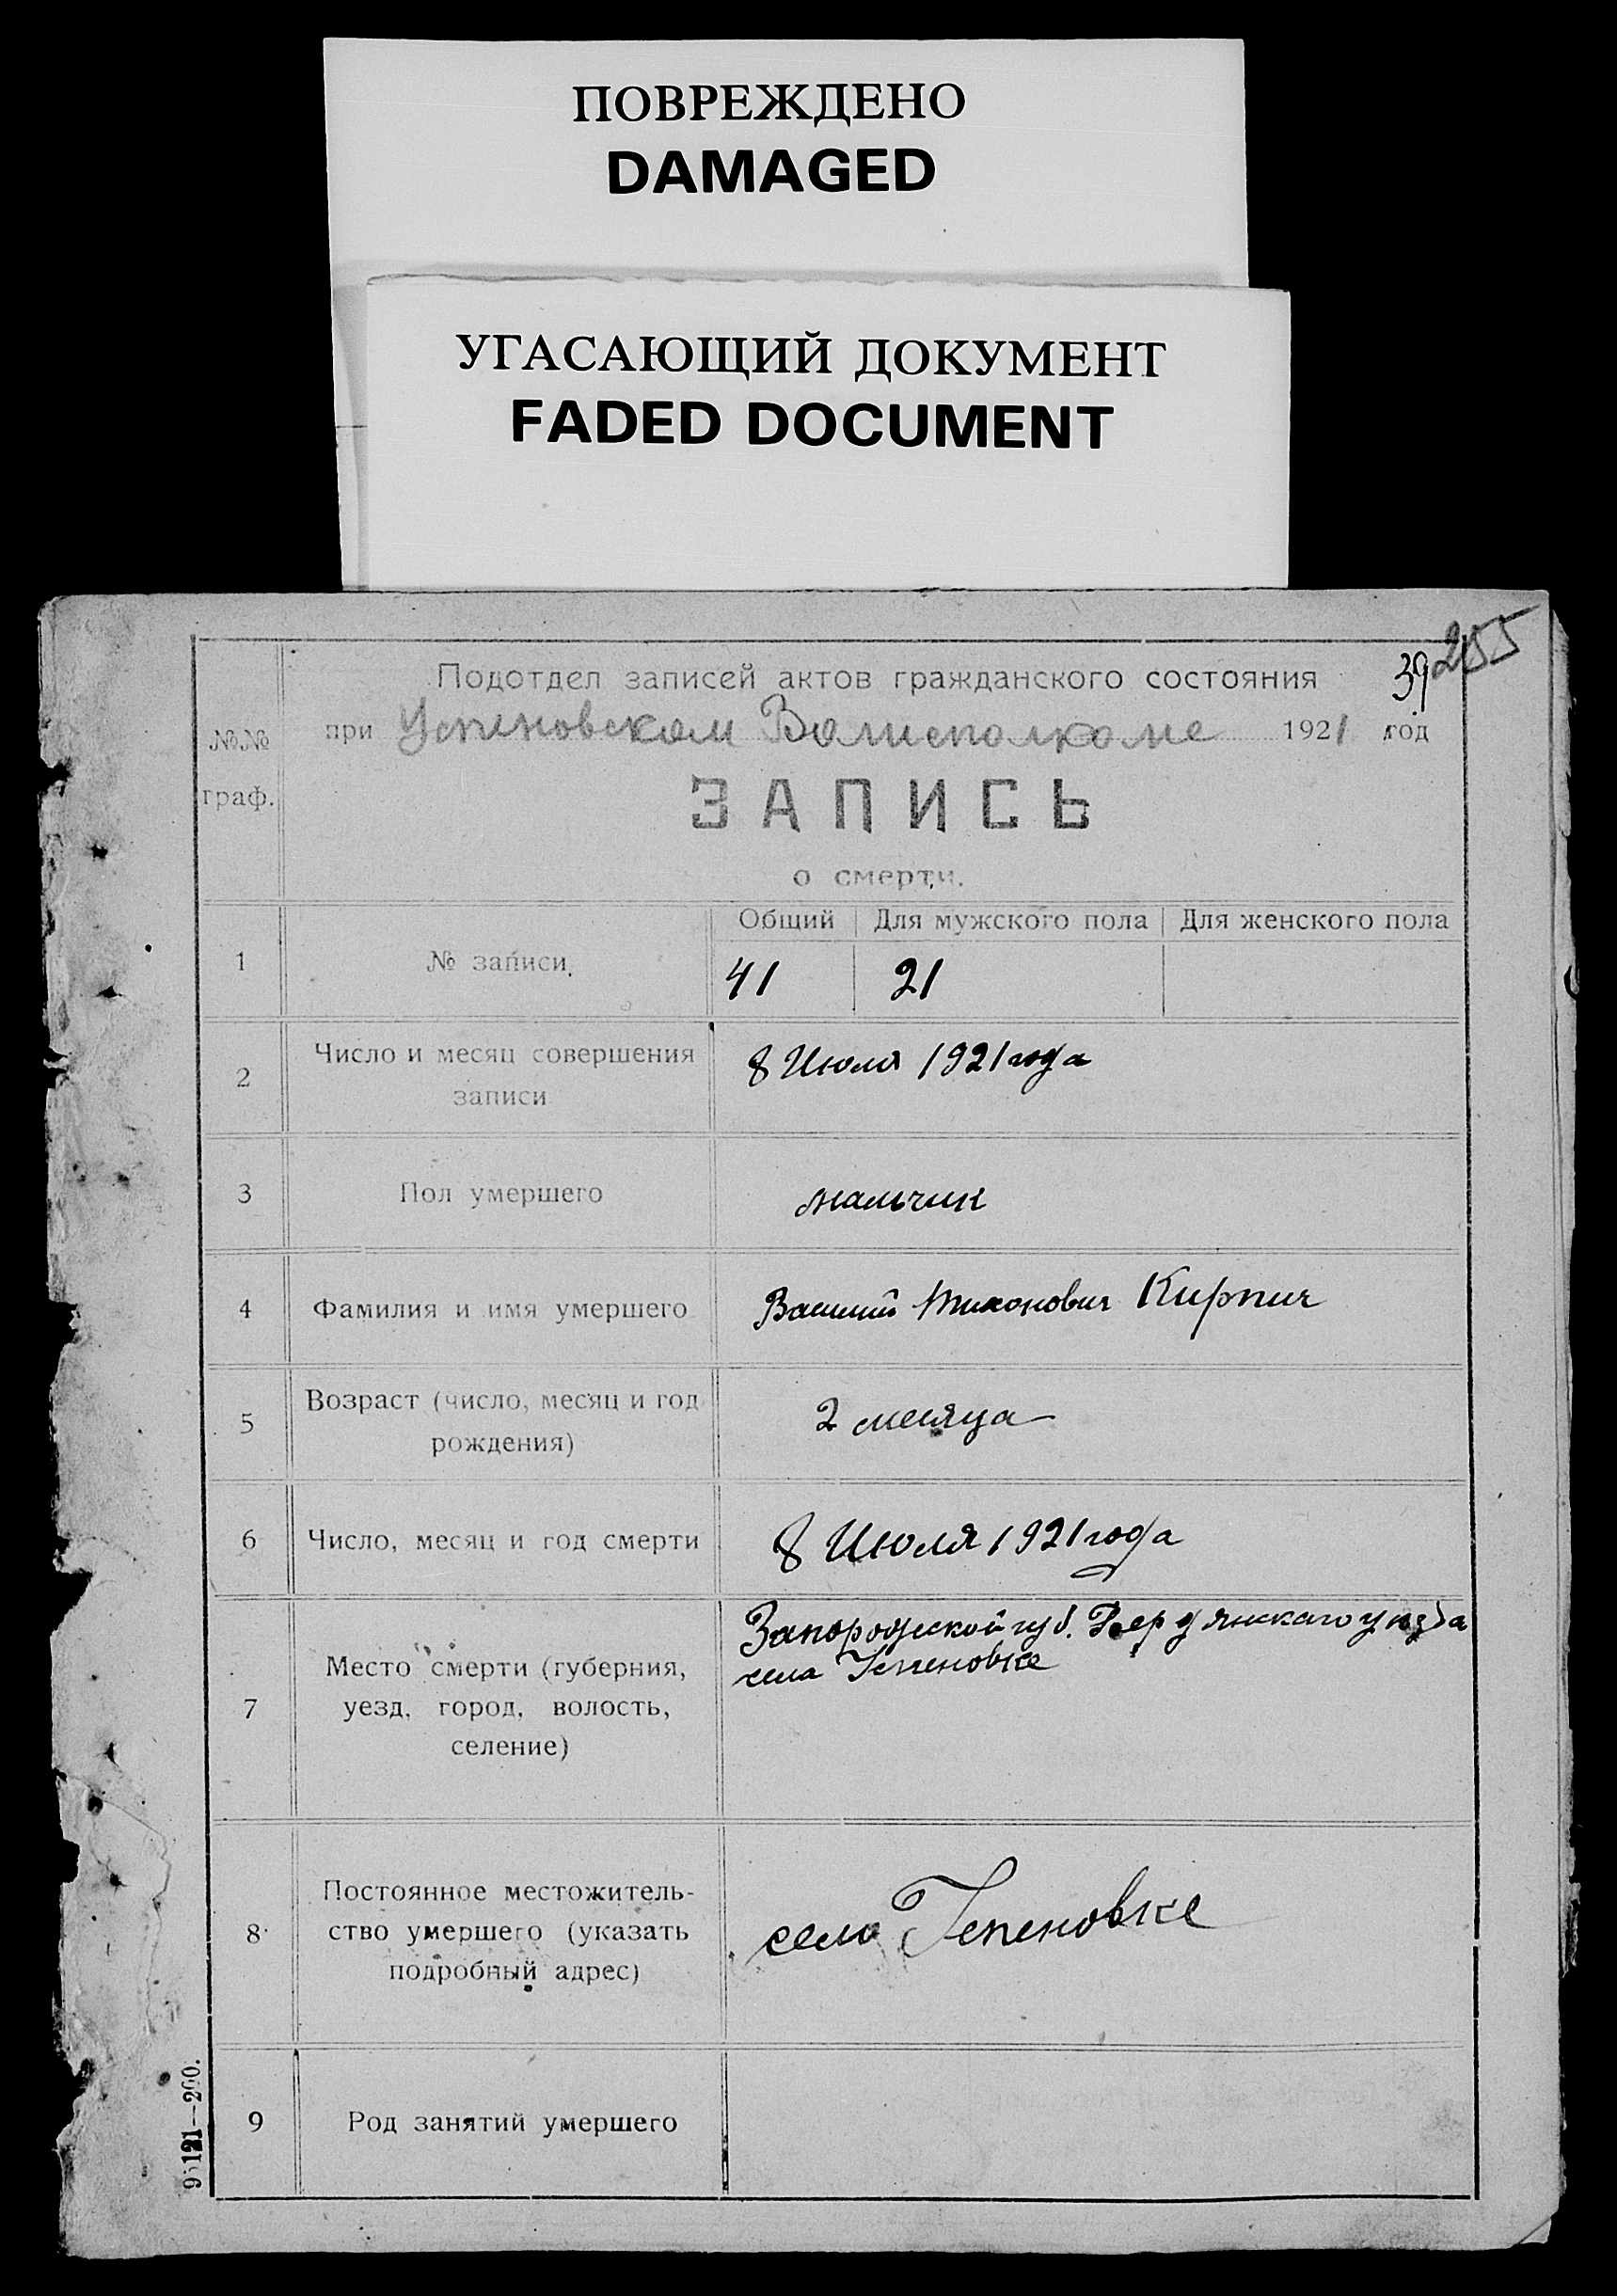 ПОВРЕЖДЕНО
DAMAGED
УГАСАЮЩИЙ ДОКУМЕНТ
FADED DOCUMENT
39 255
Подотдел записей актов гражданского состояния
№№ граф.
при Успеновском Волисполкоме 1921 год
ЗАПИСЬ
о смерти.
Общий Для мужского пола Для женского пола
1 № записи. 41 21
2 Число и месяц совершения записи 8 Июля 1921 года
3 Пол умершего мальчик
4 Фамилия и имя умершего Василий Тихонович Кирпич
5 Возраст (число, месяц и год рождения) 2 месяца
6 Число, месяц и год смерти 8 Июля 1921 года
7 Место смерти (губерния, уезд, город, волость, селение)
Запорожской губ. Бердянскаго уезда
села Успеновке
8 Постоянное местожитель-
ство умершего (указать
подробный адрес)
село Успеновке
9 Род занятий умершего